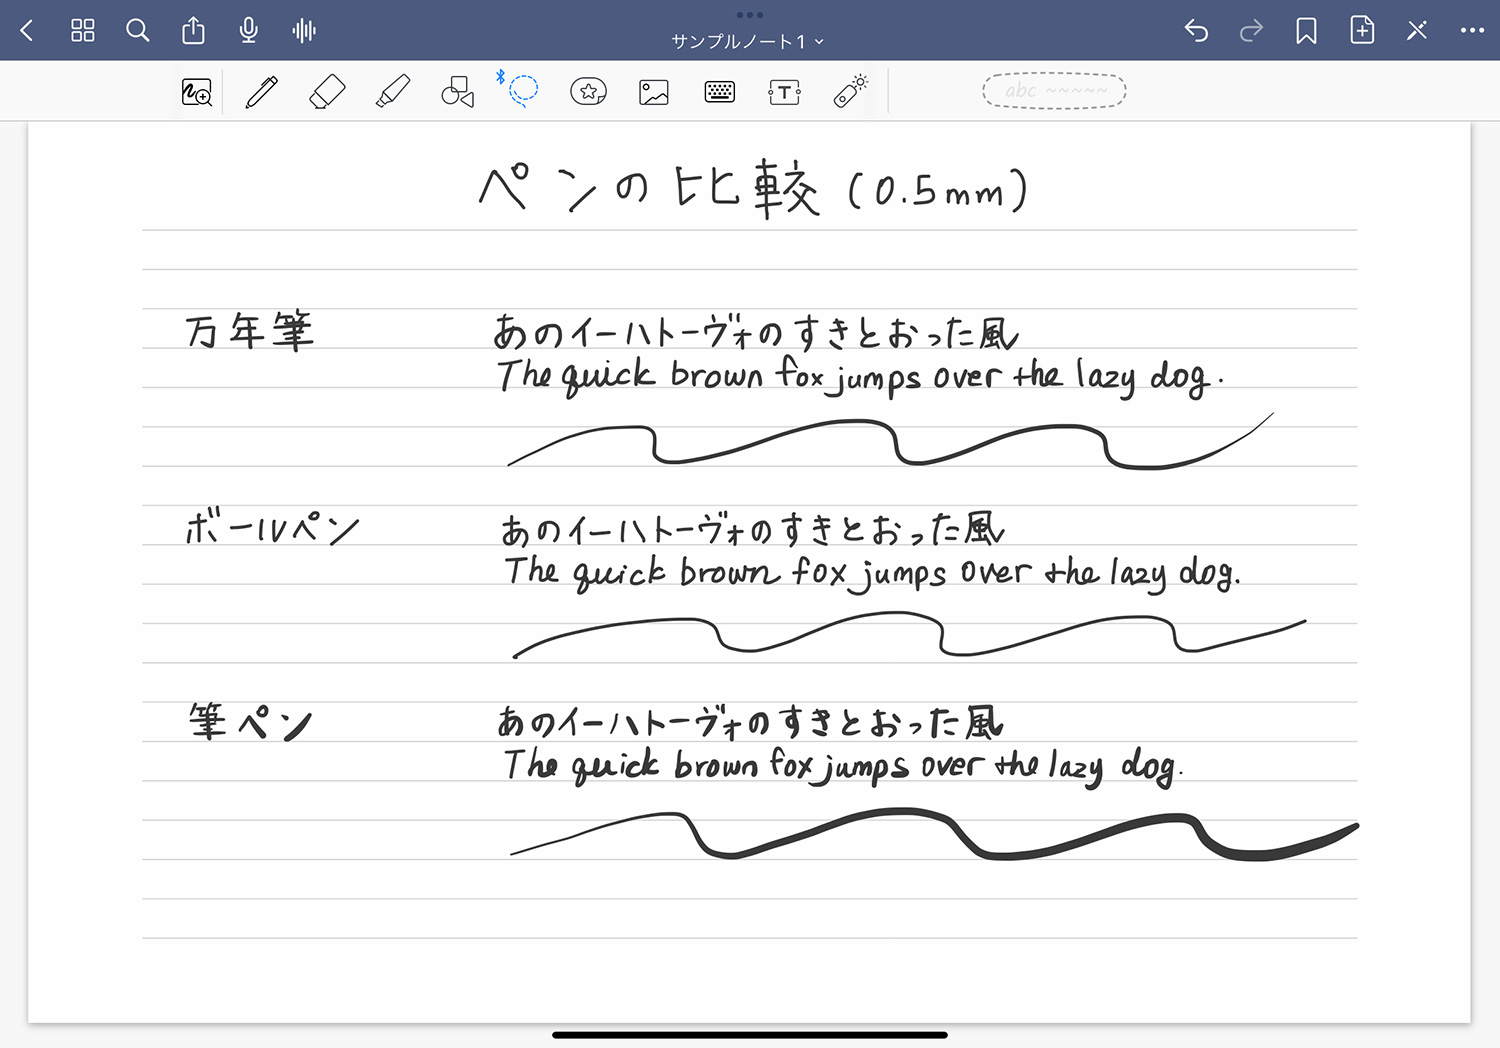 サンプルノート1
abc ~~~~~
ペンの比較(0.5mm)
万年筆
あのイーハトーヴォのすきとおった風
The quick brown fox jumps over the lazy dog.
ボールペン
あのイーハトーヴォのすきとおった風
The quick brown fox jumps over the lazy dog.
筆ペン
あのイーハトーヴォのすきとおった風
The quick brown fox jumps over the lazy dog.